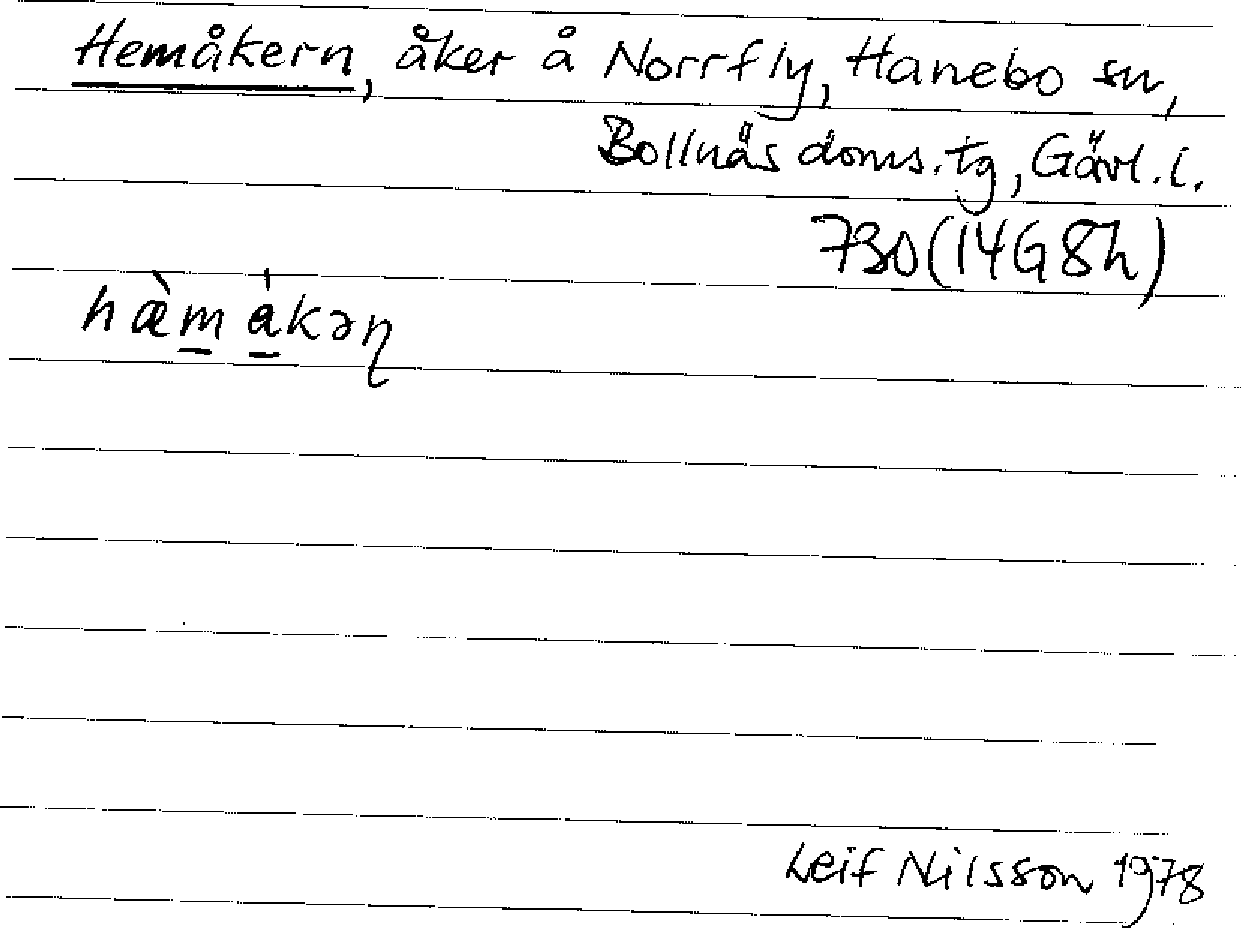 Hemåkern, åker å Norrfly, Hanebo sn,
Bollnäs doms.tg, Gävl.l.
730 (14G8h)
hæ̀m̲ a̲̍kəɳ
Leif Nilsson 1978